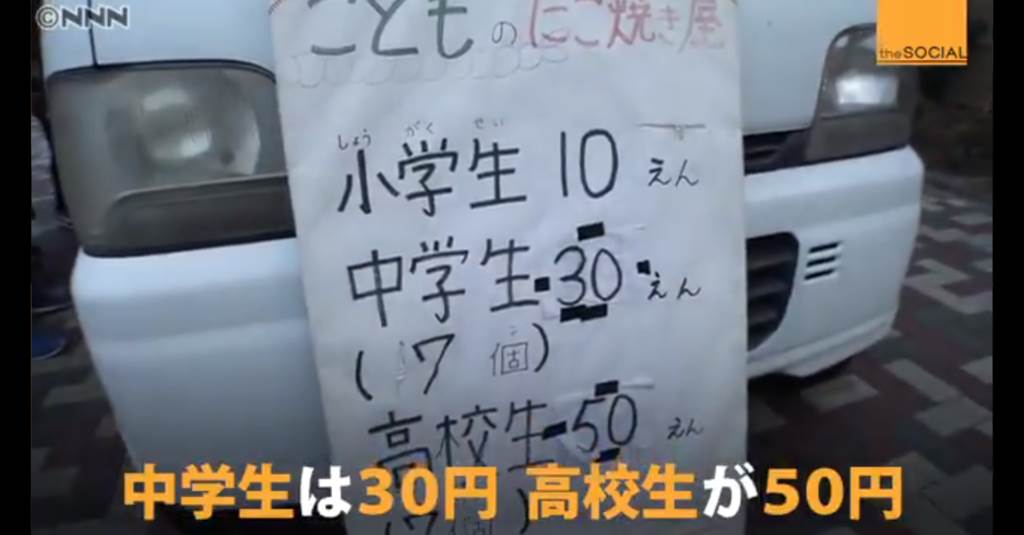 ©NNN
the SOCIAL
こどものたこ焼き屋
しょう がく せい
小学生 10 えん
中学生 30 えん
こ
(7個)
高校生 50 えん
中学生は30円 高校生が50円
(7個)